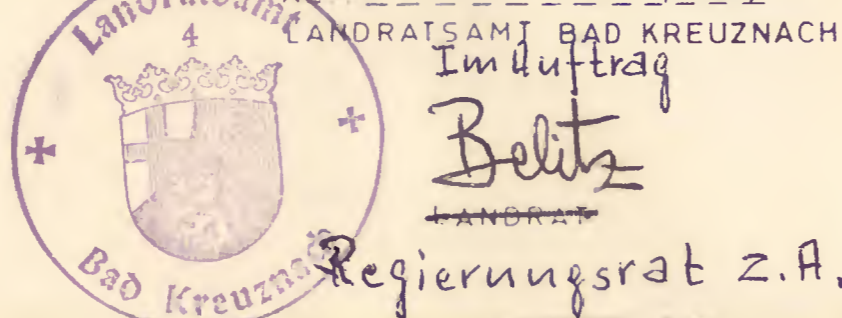 Landratsamt
4
Bad Kreuznach
LANDRATSAMT BAD KREUZNACH
Im Auftrag
Belitz
LANDRAT
Regierungsrat z.A.